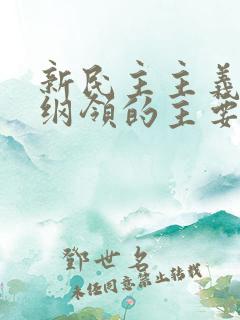 新民主主義
纲領的主要
鄧世名
未经同意禁止转载